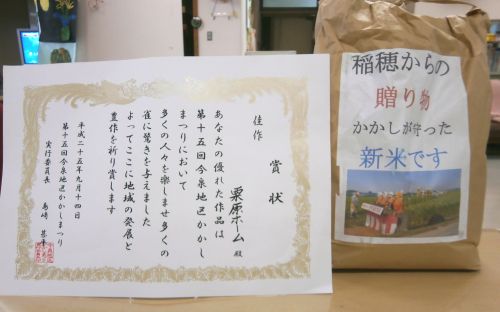 賞状
佳作
栗原ホーム 殿
あなたの優れた作品は
第十五回今泉地区かかし
まつりにおいて
多くの人々を楽しませ多くの
雀に驚きを与えました
よってここに地域の発展と
豊作を祈り賞します
平成二十五年九月十四日
第十五回今泉地区かかしまつり
実行委員長
稲穂からの
贈り物
かかしが守った
新米です